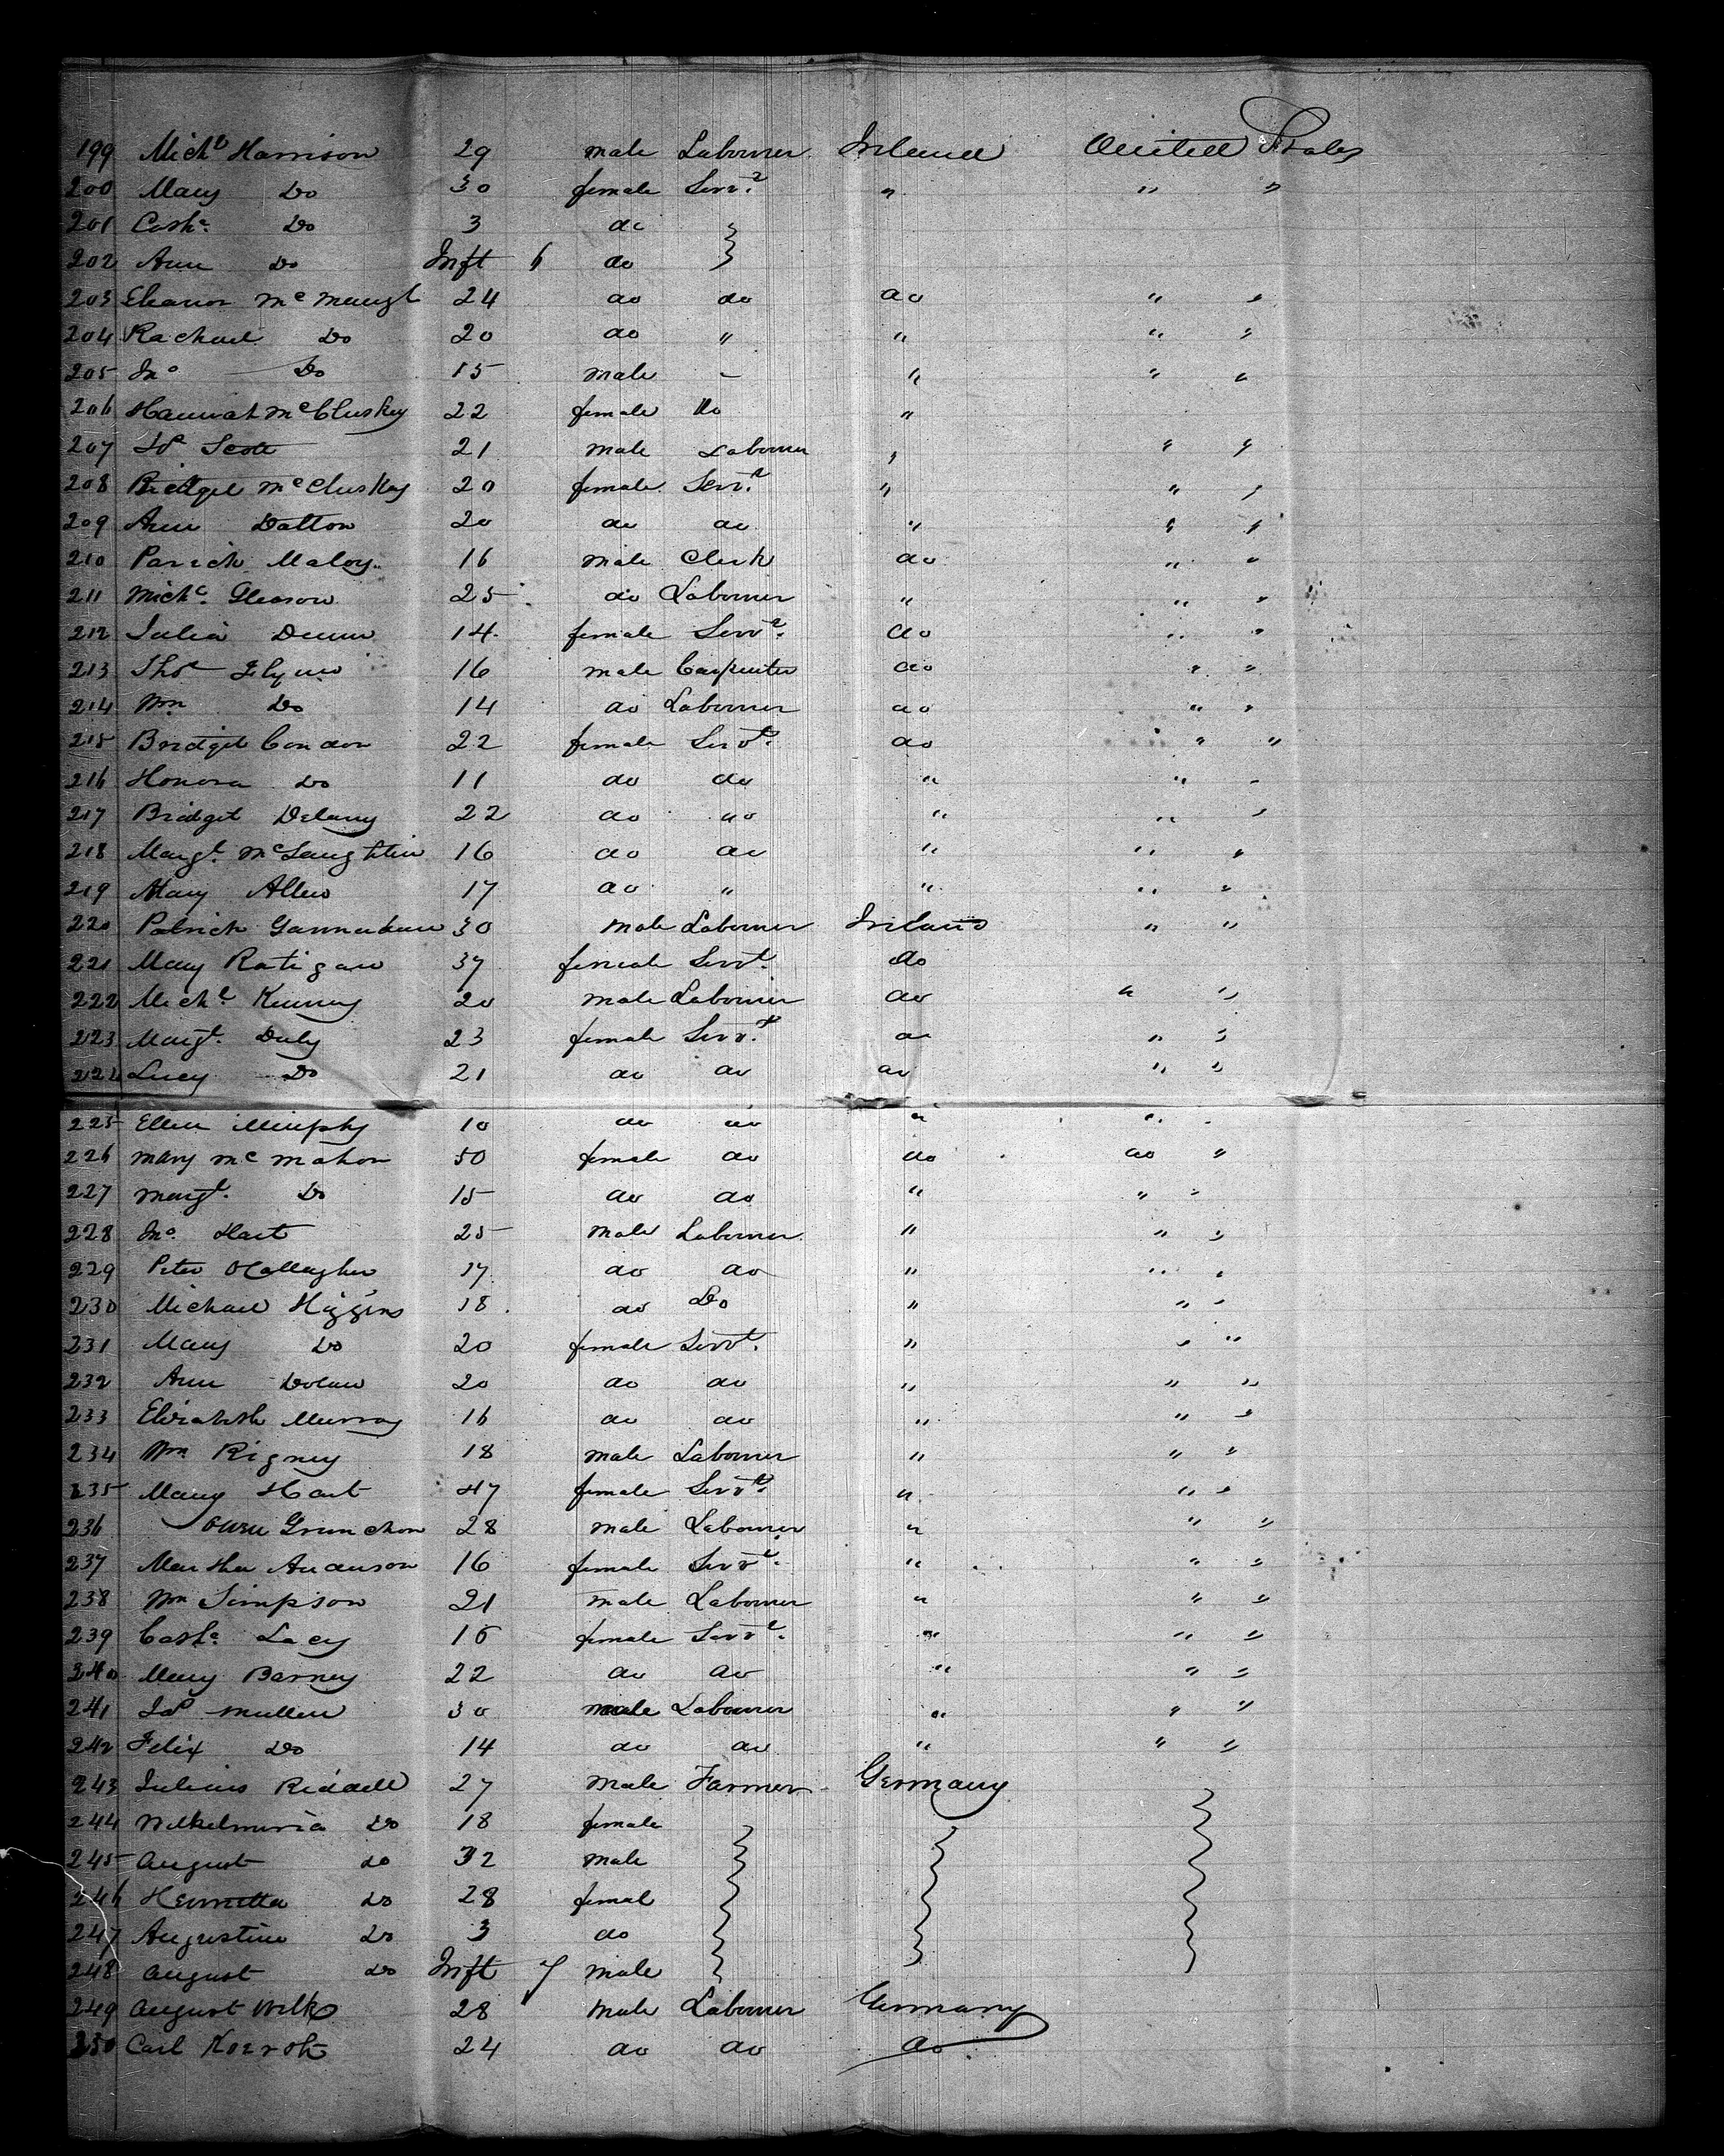 199 Michl Harrison 29 male Labourer Ireland United States
200 Mary Do 30 female Servt " " "
201 Cathe Do 3 do
202 Ann Do Inft 6 do
203 Eleanor Mc 24 do do do " "
204 Rachael Do 20 do " " " "
205 Jno Do 15 male - " " "
206 Hannah McCluskey 22 female Do "
207 Scott 21 male Labourer " " "
208 Bridget McCluskey 20 female Servt " " "
209 Ann Dalton 20 do do " " "
210 Patrick Maloy 16 male Clerk do " "
211 Michl Gleason 25 do Labourer " " "
212 Julia Dunn 14 female Servt do " "
213 Thos Flynn 16 male Carpenter do " "
214 Wm Do 14 do Labourer do " "
215 Bridget Condon 22 female Servt do " "
216 Honora Do 11 do do " " "
217 Bridget Delany 22 do do " " "
218 Margt McLaughlin 16 do do " " "
219 Mary Allen 17 do " " " "
220 Patrick 30 male Labourer Ireland " "
221 Mary Ratigan 37 female Servt do
222 Michl Kenny 20 male Labourer do " "
223 Margt Daly 23 female Servt do " "
224 Lucy Do 21 do do do " "
225 Ellen Murphy 10 do do " " "
226 Mary McMahon 50 female do do do "
227 Margt Do 15 do do " " "
228 Jno Hart 25 male Labourer " " "
229 Peter OCallaghan 17 do do " " "
230 Michael Higgins 18 do Do " " "
231 Mary Do 20 female Servt " " "
232 Ann Dolan 20 do do " " "
233 Elizabeth Murray 16 do do " " "
234 Wm Rigney 18 male Labourer " " "
235 Mary Hart 47 female Servt " " "
236 Owen 28 male Labourer " " "
237 Martha Anderson 16 female Servt " " "
238 Wm Simpson 21 male Labourer " " "
239 Cathe Lacy 16 female Servt " " "
240 Mary Barney 22 do do " " "
241 Jas Mullen 30 male Labourer " " "
242 Felix Do 14 do do " " "
243 Julius Riddell 27 male Farmer Germany
244 Wilhelmina Do 18 female
245 August do 32 male
246 Henrietta Do 28 femal
247 Augustine Do 3 do
248 August Do Inft 7 male
249 August Wilks 28 male Labourer Germany
250 Carl 24 do do do